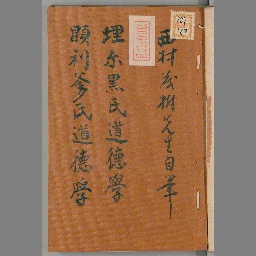 西村茂樹先生自筆
埋尓黒氏道德學
顕利爹氏道德學